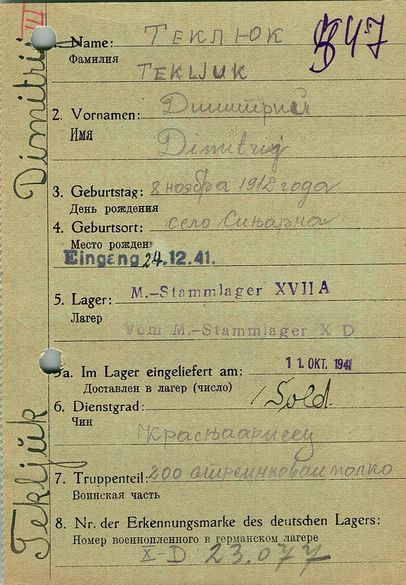 III
1. Name: ТЕКЛЮК
Фамилия
TEKLJUK
847
2. Vornamen: Дмитрий
Имя
Dimitrij
3. Geburtstag: 8 ноября 1912 года
День рождения
4. Geburtsort: село
Место рожден
Eingang 24.12.41.
5. Lager: M.-Stammlager XVII A
Лагер
Vom M.-Stammlager X D
5a. Im Lager eingeliefert am: 11. OKT. 1941
Доставлен в лагер (число)
6. Dienstgrad: Sold.
Чин
7. Truppenteil: 200
Воинская часть
8. Nr. der Erkennungsmarke des deutschen Lagers:
Номер военнопленного в германском лагере
X-D 23.077
Tekljuk Dimitrij